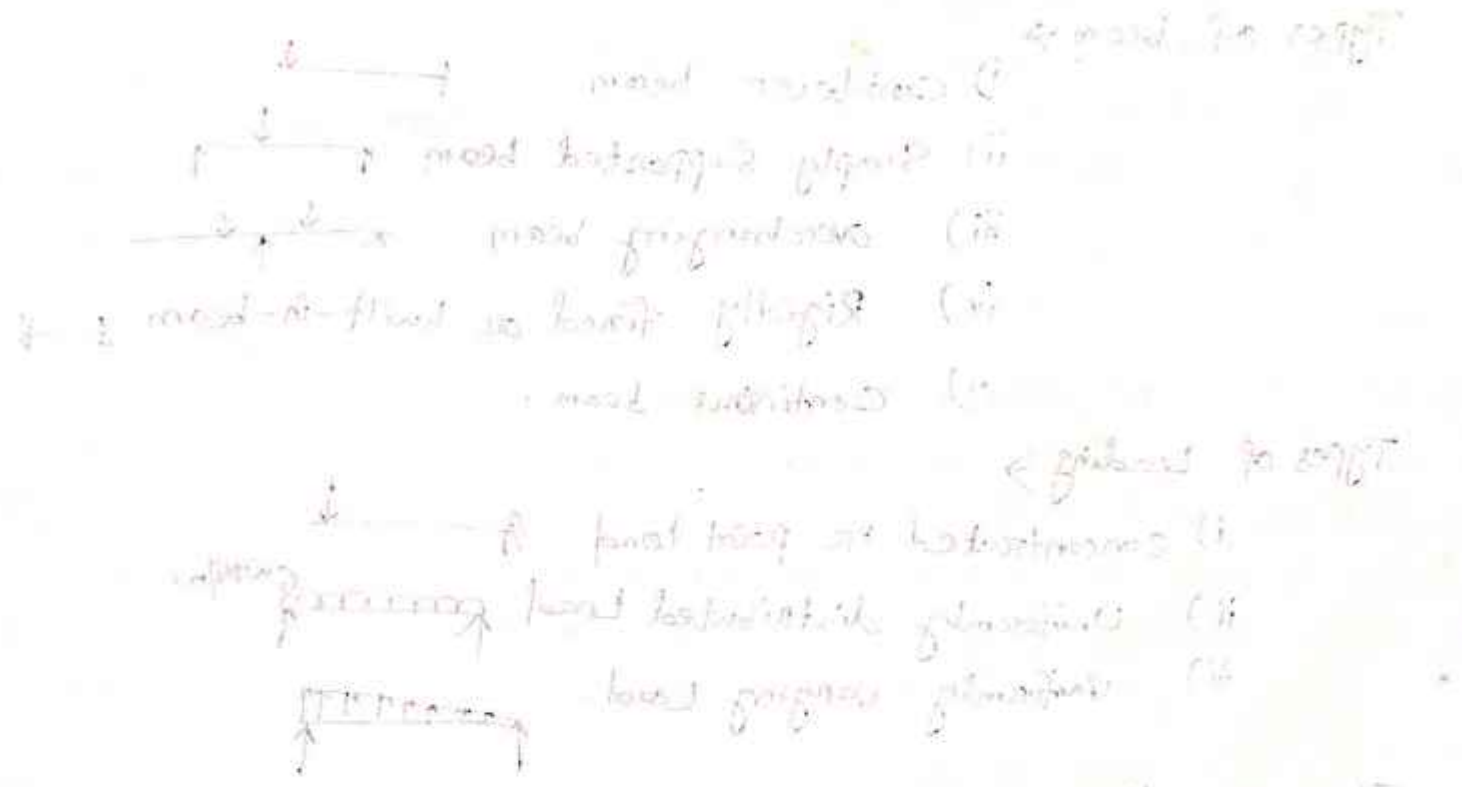 Types of beams
i) Cantilever beam
ii) Simply Supported beam
iii) overhanging beam
iv) Rigidly fixed or built-in-beam
v) Continous beam.
Types of Loading >
i) concentrated or point load
ii) Uniformly distributed Load
iii) Uniformly varying Load.